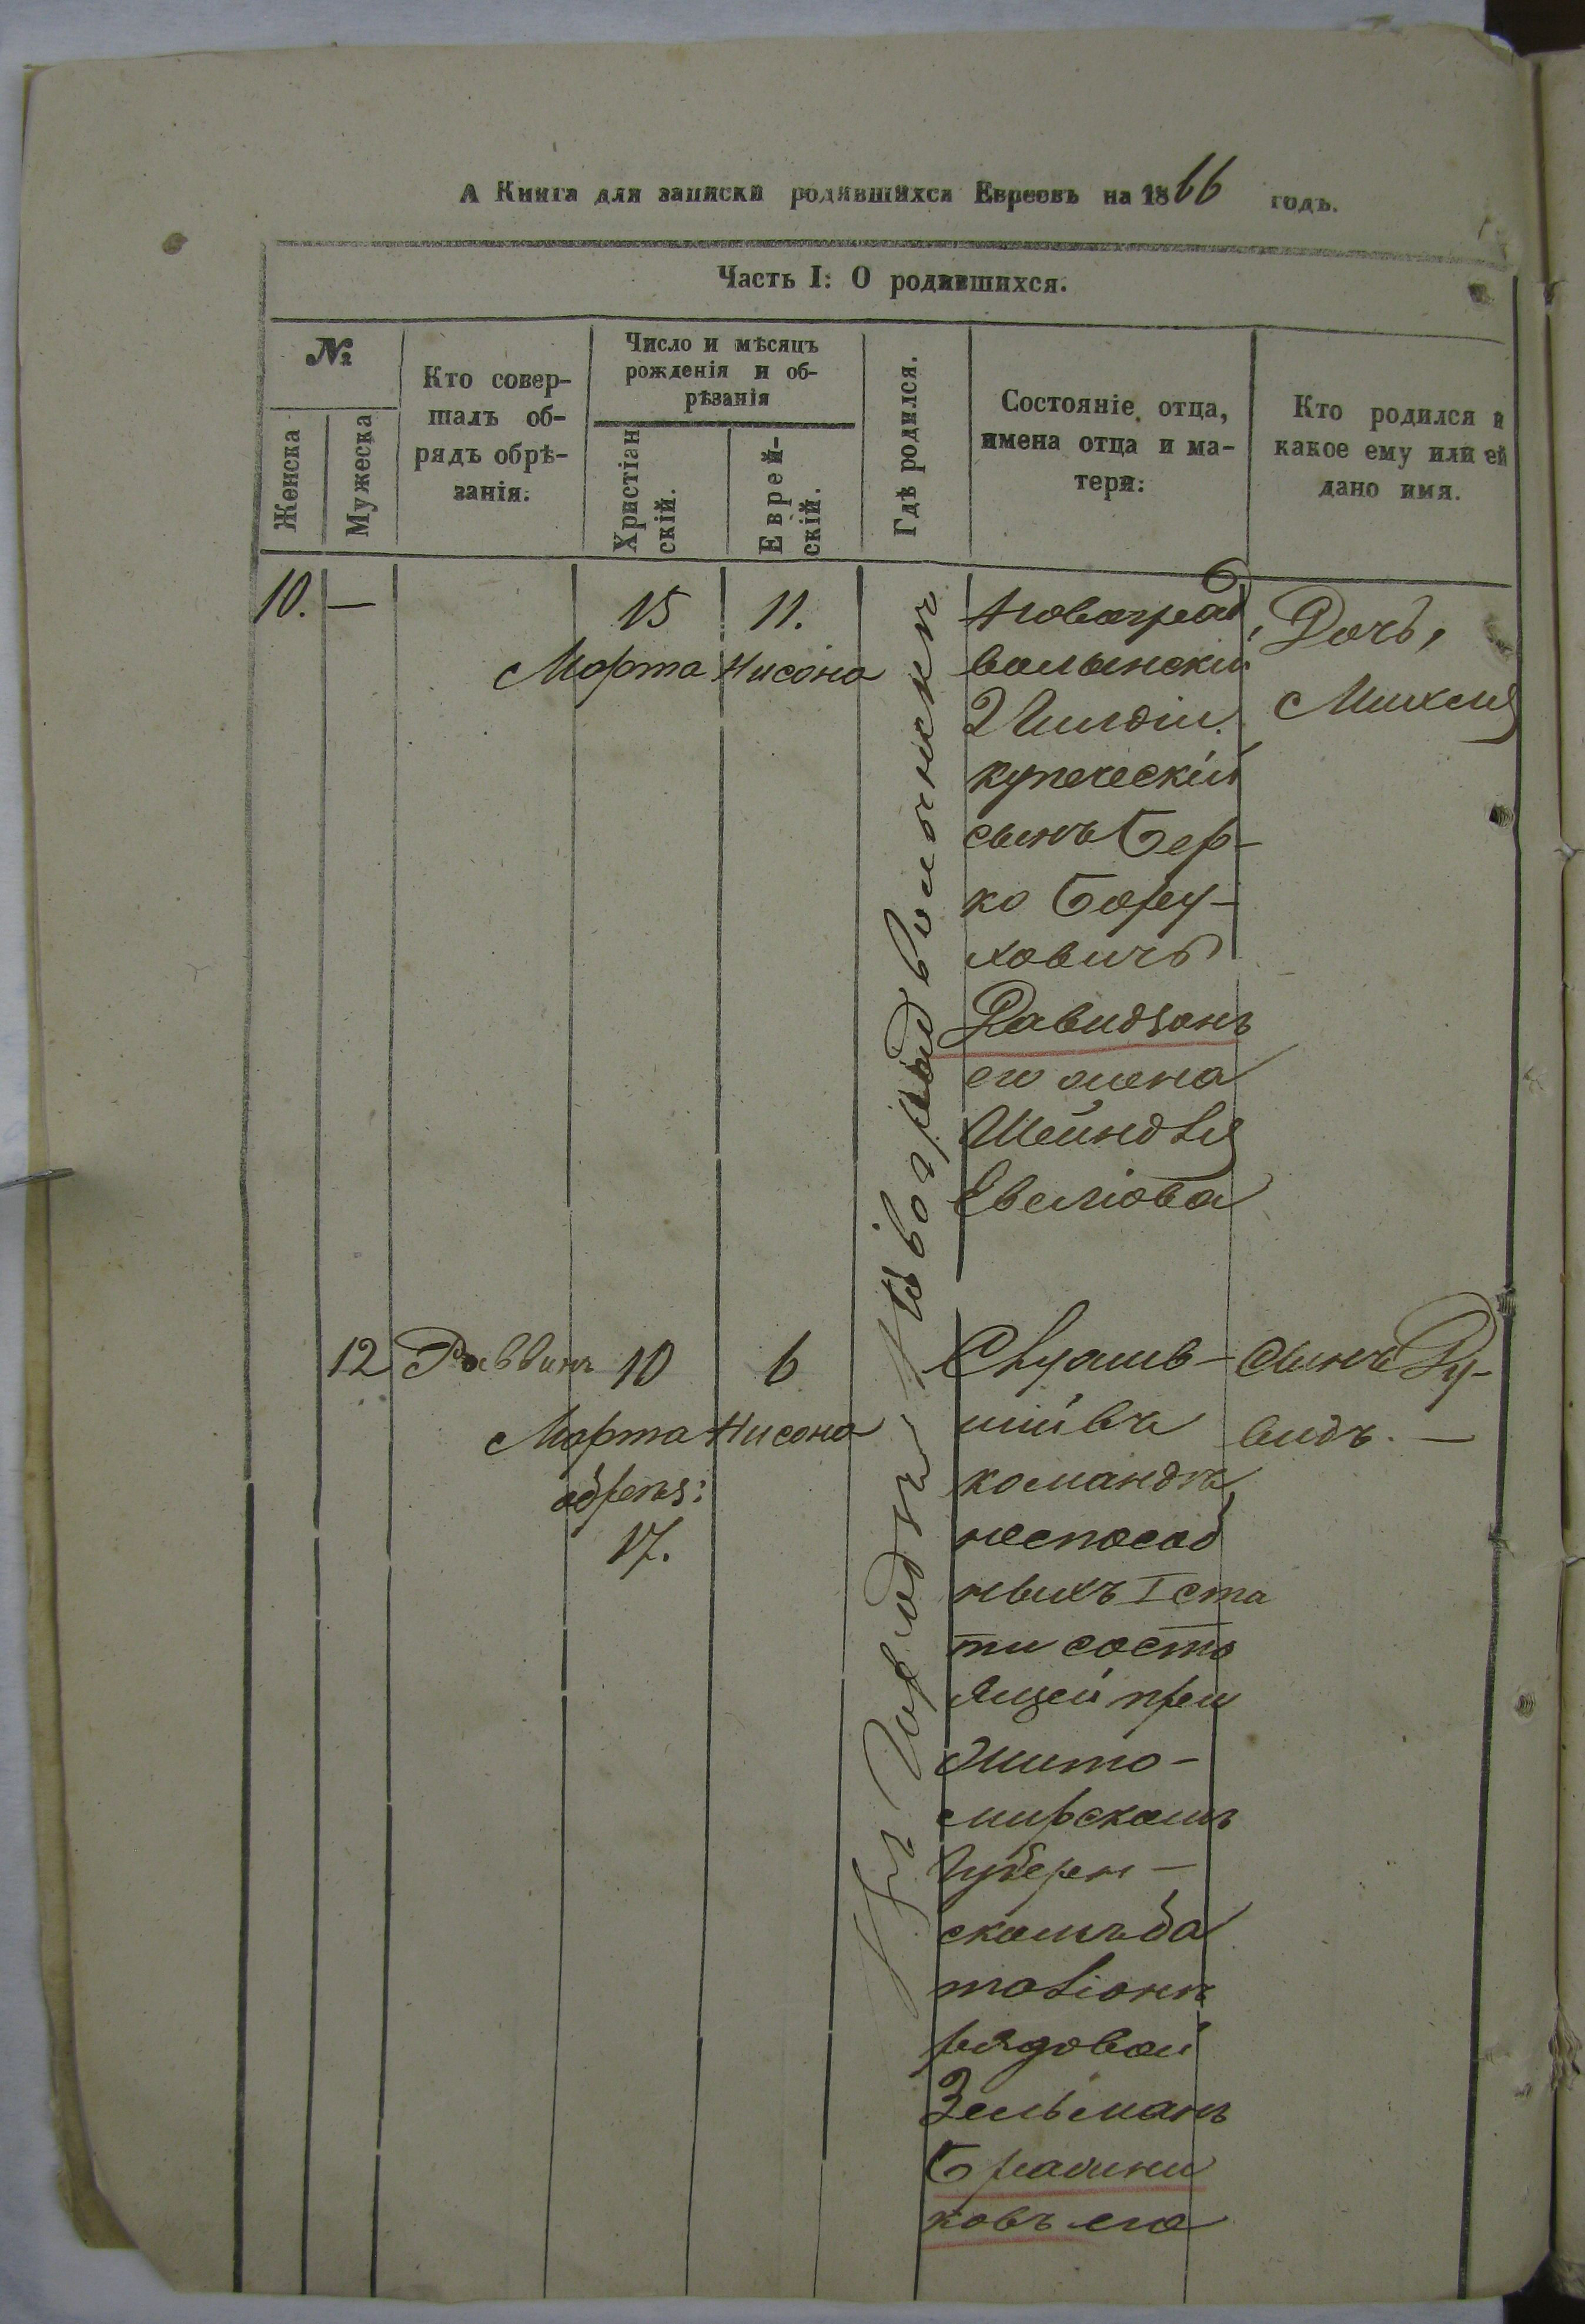 А Книга для записки родившихся Евреовъ на 1866 годъ.
Часть I: О родившихся.
№
Женска
Мужеска
Кто совер-
шалъ об-
рядъ обрѣ-
занія:
Число и мѣсяцъ
рожденія и об-
рѣзанія
Христіан
скій.
Еврей-
скій.
Гдѣ родился.
Состояніе отца,
имена отца и ма-
тери:
Кто родился и
какое ему или ей
дано имя.
10. —
15
Марта
11.
Нисона
Въ Городѣ Новоградволынскѣ
Новоград
волынскій
2 Гилдіи
купеческій
сынъ Бер-
ко Бору-
ховичъ
Давидзонъ
его жена
Шейндля
Евелюва
Дочь,
Михля
12
Раввинъ
10
Марта
обрѣз:
17.
6
Нисона
Служив-
шій въ
командѣ
неспособ
ныхъ I ста
ти состо
ящей при
Жито-
мирскомъ
Губерн-
скомъ ба
таліонѣ
рядовой
Зельманъ
Бражни
ковъ его
Сынъ Ру-
винъ. —